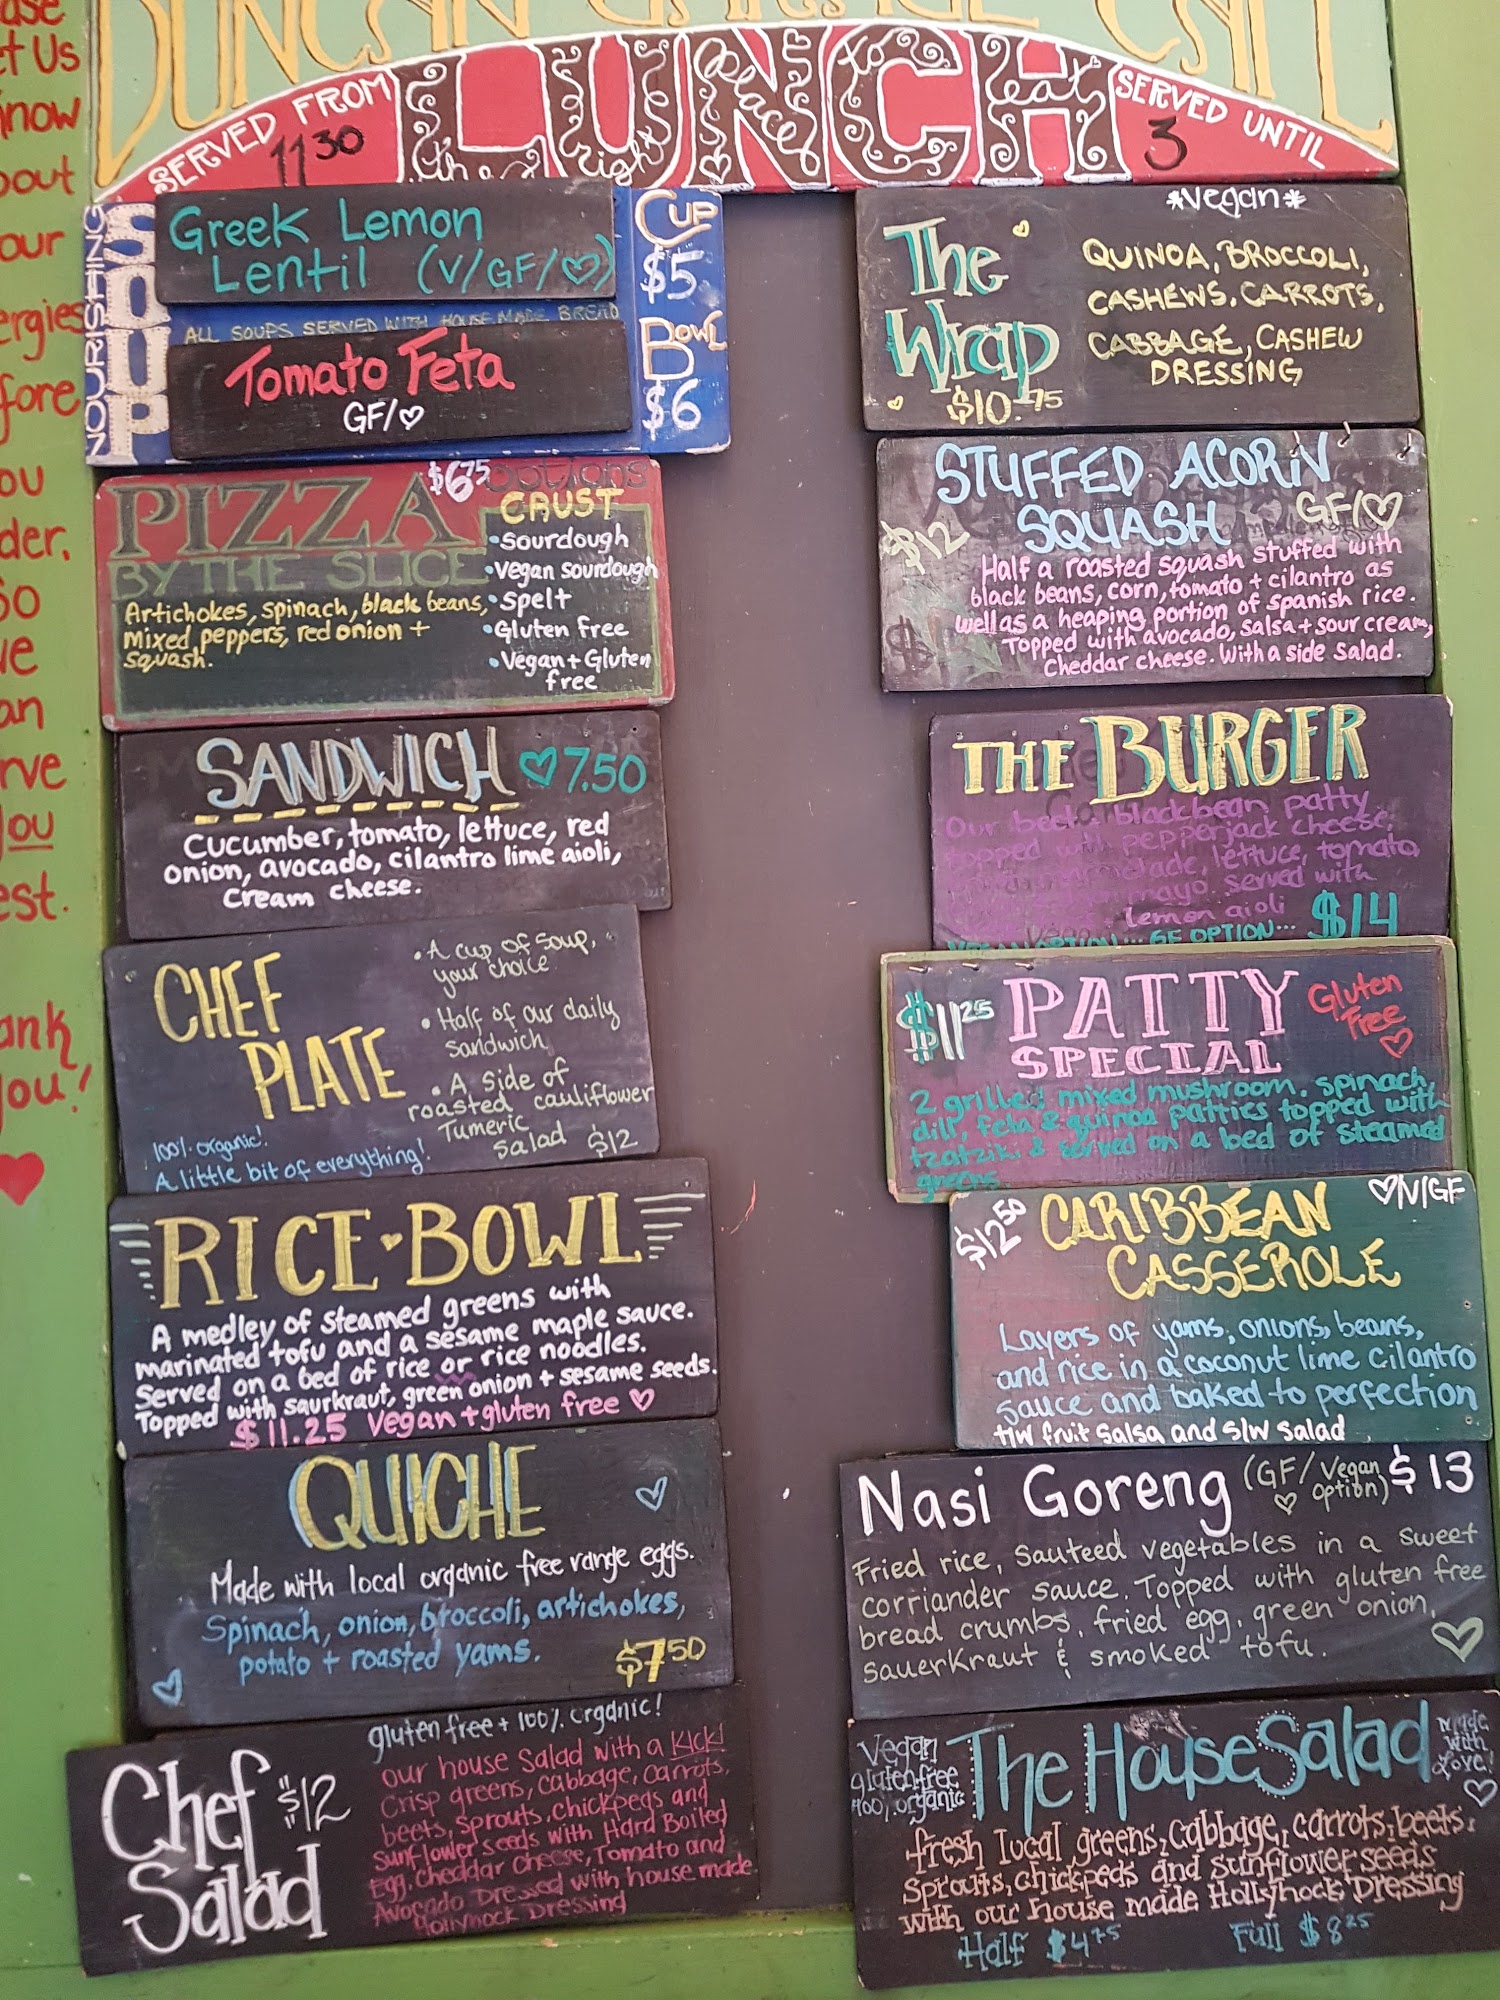 DUNCAN GARAGE CAFE
SERVED FROM
11 30
LUNCH
the right place to eat
SERVED UNTIL
3
ase
et Us
know
bout
our
ergies
fore
ou
der.
So
we
an
rve
you
est.
ank
you!
NOURISHING
SOUP
Greek Lemon
Lentil (V/GF/♡)
ALL SOUPS SERVED WITH HOUSE MADE BREAD
Tomato Feta
GF/♡
CUP
$5
BOWL
$6
PIZZA $6.75 options
BY THE SLICE
Artichokes, spinach, black beans,
mixed peppers, red onion +
squash.
CRUST
•Sourdough
•Vegan sourdough
•Spelt
•Gluten free
•Vegan + Gluten
free
SANDWICH ♡7.50
Cucumber, tomato, lettuce, red
onion, avocado, cilantro lime aioli,
cream cheese.
CHEF
PLATE
• A cup of soup,
your choice
• Half of our daily
sandwich
• A side of
roasted cauliflower
Tumeric
salad $12
100% organic!
A little bit of everything!
RICE♥BOWL
A medley of steamed greens with
marinated tofu and a sesame maple sauce.
Served on a bed of rice or rice noodles.
Topped with saurkraut, green onion + sesame seeds.
$11.25 Vegan + gluten free ♡
QUICHE
Made with local organic free range eggs.
Spinach, onion, broccoli, artichokes,
potato + roasted yams.
$7 50
Chef
Salad
$12
gluten free + 100% organic!
our house salad with a KICK!
Crisp greens, cabbage, carrots,
beets, sprouts, chickpeas and
sunflower seeds with Hard Boiled
Egg, Cheddar Cheese, Tomato and
Avocado Dressed with house made
Hollyhock Dressing
*Vegan*
The
Wrap
$10.75
QUINOA, BROCCOLI,
CASHEWS, CARROTS,
CABBAGE, CASHEW
DRESSING
STUFFED ACORN
SQUASH GF/♡
$12
Half a roasted squash stuffed with
black beans, corn, tomato + cilantro as
well as a heaping portion of Spanish rice.
Topped with avocado, salsa + sour cream,
Cheddar cheese. With a side salad.
THE BURGER
Our beet & blackbean patty
topped with pepperjack cheese,
lettuce, tomato,
mayo. served with
lemon aioli
VEGAN OPTION... GF OPTION... $14
$11 25
PATTY
SPECIAL
Gluten
Free
♡
2 grilled mixed mushroom, spinach,
dill, feta & quinoa patties topped with
tzatziki & served on a bed of steamed
greens.
$12 50
CARIBBEAN
CASSEROLE
♡/V/GF
Layers of yams, onions, beans,
and rice in a coconut lime cilantro
sauce and baked to perfection
T/W fruit salsa and S/W salad
Nasi Goreng (GF/Vegan
♡ option) $13
Fried rice, sauteed vegetables in a sweet
corriander sauce. Topped with gluten free
bread crumbs, fried egg, green onion,
sauerkraut & smoked tofu.
Vegan
gluten free
100% organic
The House Salad
made
with
Love!
♡
fresh local greens, cabbage, carrots, beets,
sprouts, chickpeas and sunflower seeds
with our house made Hollyhock Dressing
Half $4 75 Full $8 25